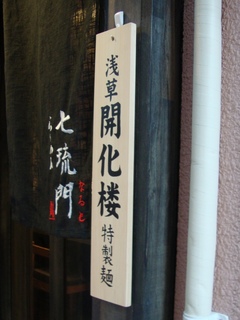 浅草開化楼特製麺
七琉門